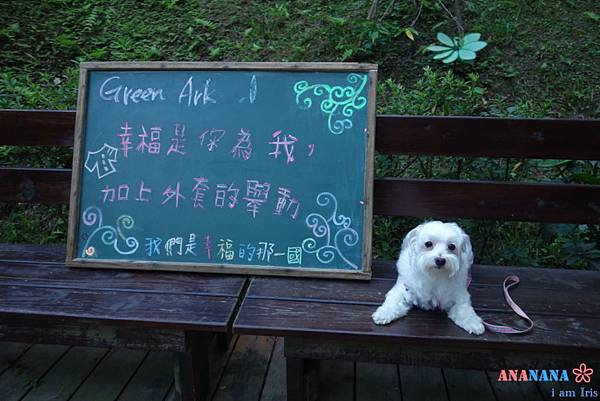 Green Ark
幸福是你為我，
加上外套的舉動
我們是幸福的那一國
ANANANA
i am Iris